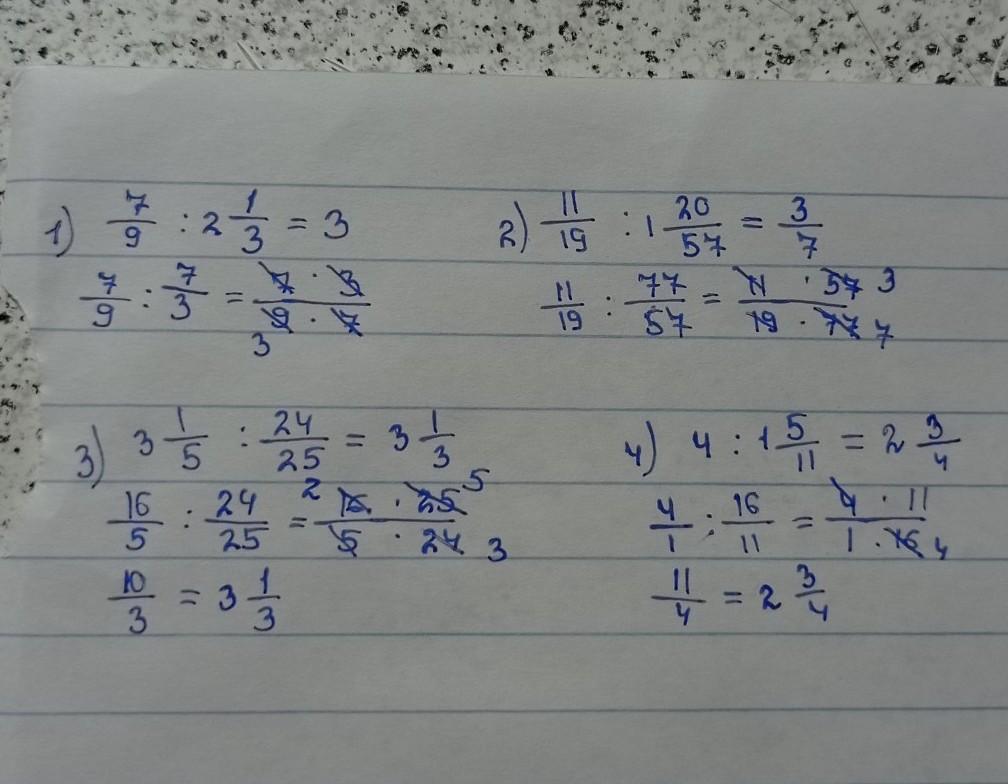 1) 7/9 : 2 1/3 = 3
7/9 : 7/3 = 7 · 3 / 9 · 7
3
2) 11/19 : 1 20/57 = 3/7
11/19 : 77/57 = 11 · 57 3 / 19 · 77 7
3) 3 1/5 : 24/25 = 3 1/3
16/5 : 24/25 = 2 16 · 25 5 / 5 · 24 3
10/3 = 3 1/3
4) 4 : 1 5/11 = 2 3/4
4/1 : 16/11 = 4 · 11 / 1 · 16 4
11/4 = 2 3/4